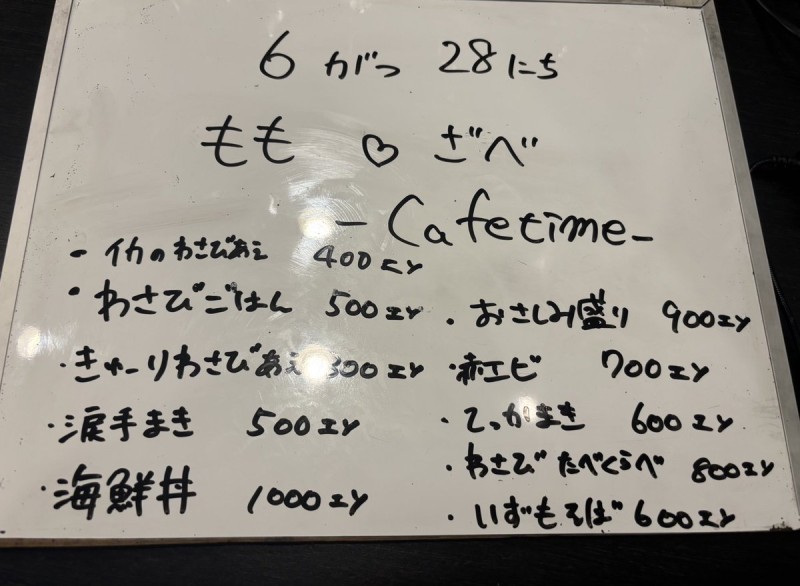 6 がつ 28 にち
もも ♡ ざべ
- Cafetime -
- イカのわさびあえ 400エン
・わさびごはん 500エン
・きゅーりわさびあえ 300エン
・涙手まき 500エン
・海鮮丼 1000エン
・おさしみ盛り 900エン
・赤エビ 700エン
・てっかまき 600エン
・わさびたべくらべ 800エン
・いずもそば 600エン